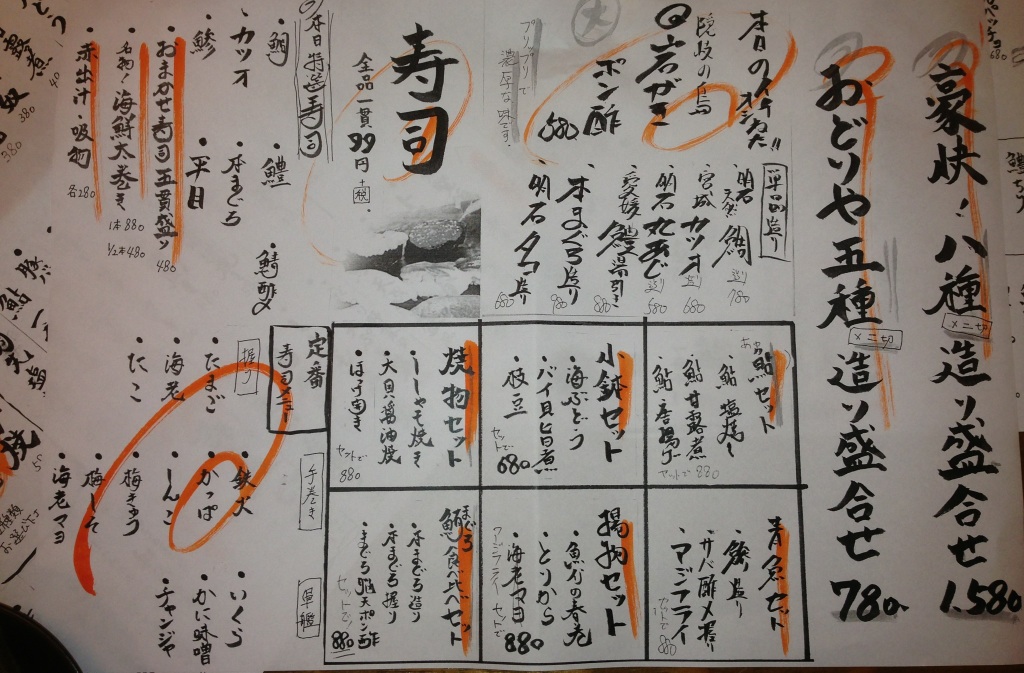 豪快！八種造り盛合せ 1.580
×二切
おどりや五種造り盛合せ 780
×二切
本日のイチオシだ!!
岩がき
ポン酢
680
プリプリで
濃厚な味です。
単品造り
明石 天然 鯛 造り 780
宮城 カツオ 造り 680
明石 丸あじ 造り 580
愛媛 鱧 湯引き 880
本まぐろ造り 980
明石タコ造り 680
寿司
全品一貫99円
+税
本日特選寿司
・鯛
・鱧
・鯖酢〆
・カツオ
・本まぐろ
・鯵
・平目
・おまかせ寿司五貫盛り 480
・名物！海鮮太巻き 1本880
1/2本480
・赤出汁・吸物 各280
鮎セット
・鮎塩焼
・鮎甘露煮
・鮎唐揚げ
セットで 880
小鉢セット
・海ぶどう
・バイ貝旨煮
・枝豆
セットで 680
焼物セット
・ししゃも焼き
・大貝醤油焼
・ほっけ焼き
セットで 880
青魚セット
・鯵造り
・サバ酢〆握り
・アジフライ
セットで 880
揚物セット
・魚介の春巻
・とりから
・海老マヨ
セットで 880
まぐろ
鮪食べ比べセット
・本まぐろ造り
・本まぐろ握り
・まぐろ脳天ポン酢
セットで 880
定番
寿司メニュー
握り
・たまご
・海老
・たこ
手巻き
・鉄火
・かっぱ
・しんこ
・梅きゅう
・梅しそ
・海老マヨ
軍艦
・いくら
・かに味噌
・チャンジャ